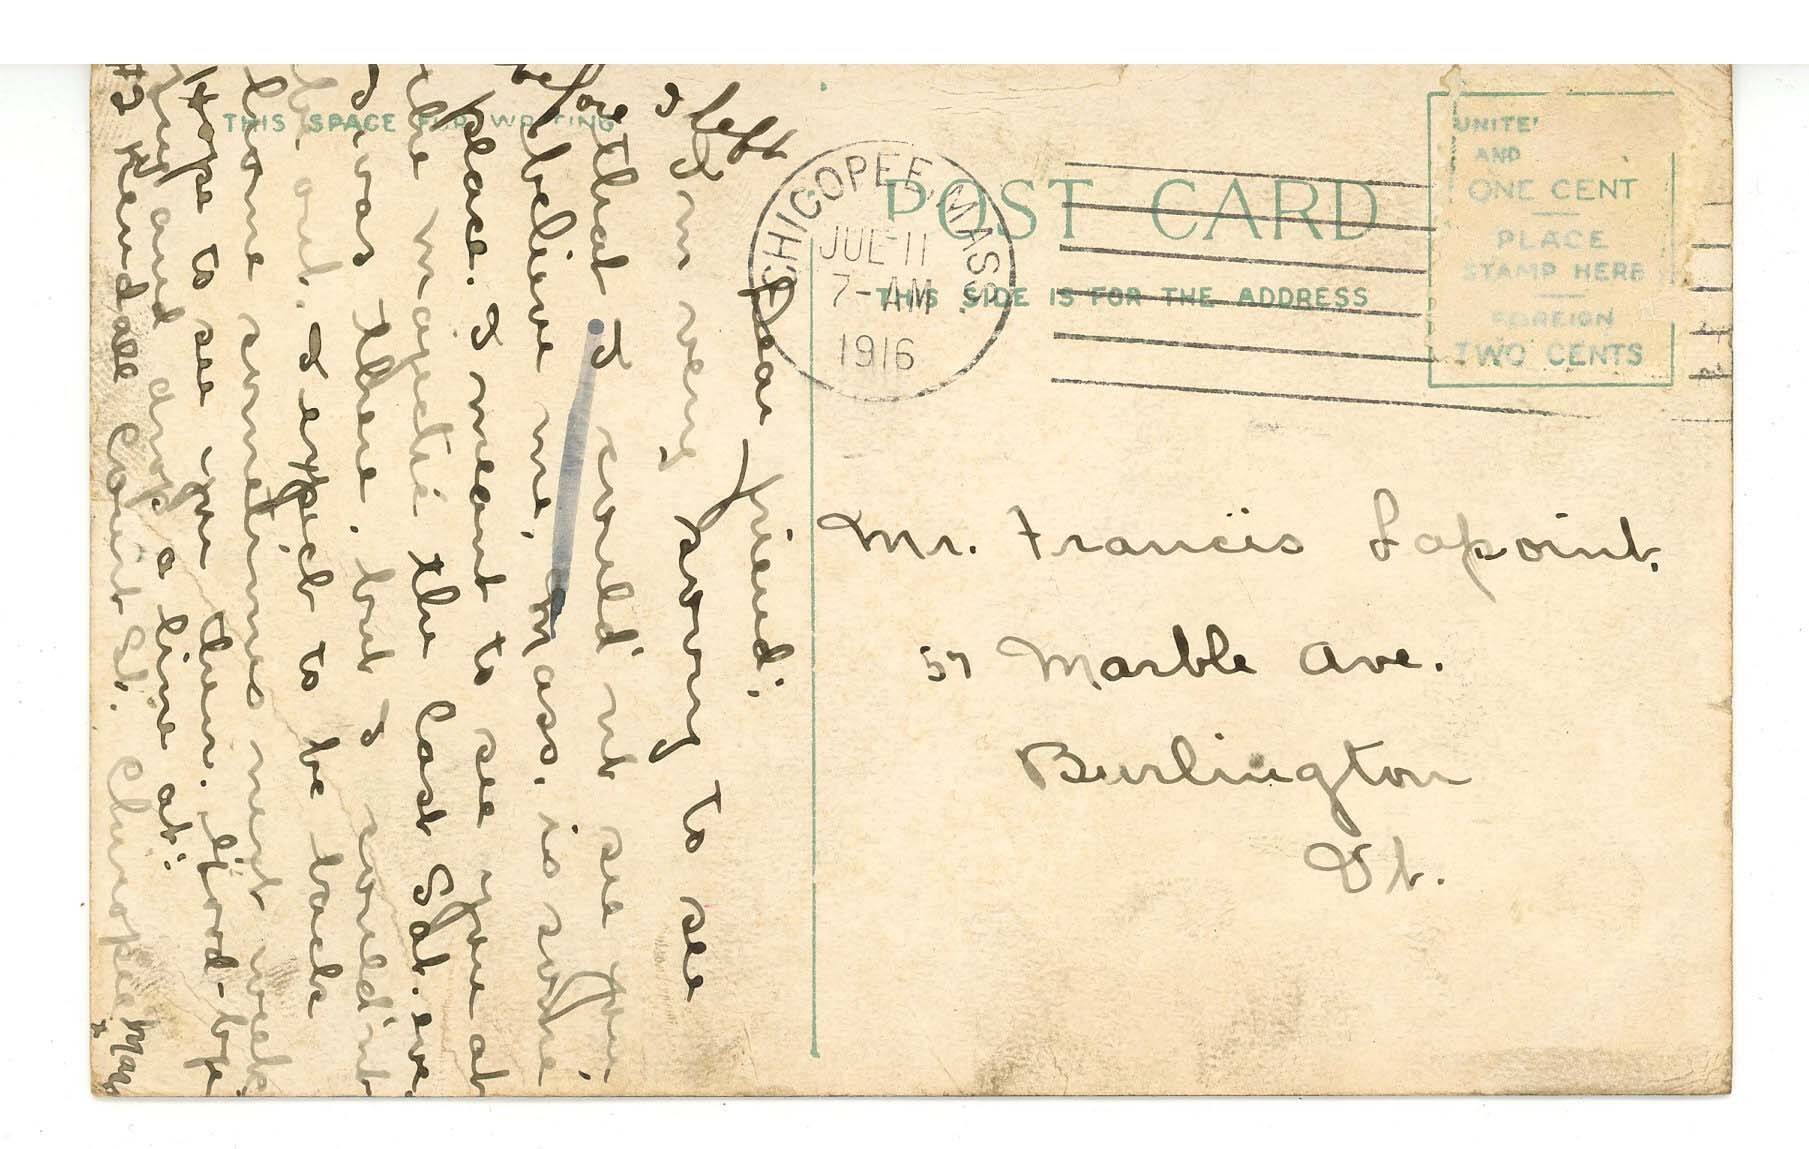 THIS SPACE FOR WRITING
Dear friend:
I'm very sorry to see
that I could'nt see you
before I left
believe me, Mass. is some
place. I meant to see you at
the majestic the last Sat. eve.
I was there, but I could'nt
out. I expect to be back
home sometimes next week
Hope to see you then. Good-bye
and drop a line at:
#2 Kendall Court St. Chicopee Mass
POST CARD
THIS SIDE IS FOR THE ADDRESS
CHICOPEE, MASS.
JUL 11
7-AM
1916
UNITE
AND
ONE CENT
PLACE
STAMP HERE
FOREIGN
TWO CENTS
Mr. Francis Lapoint.
57 Marble Ave.
Burlington
Vt.